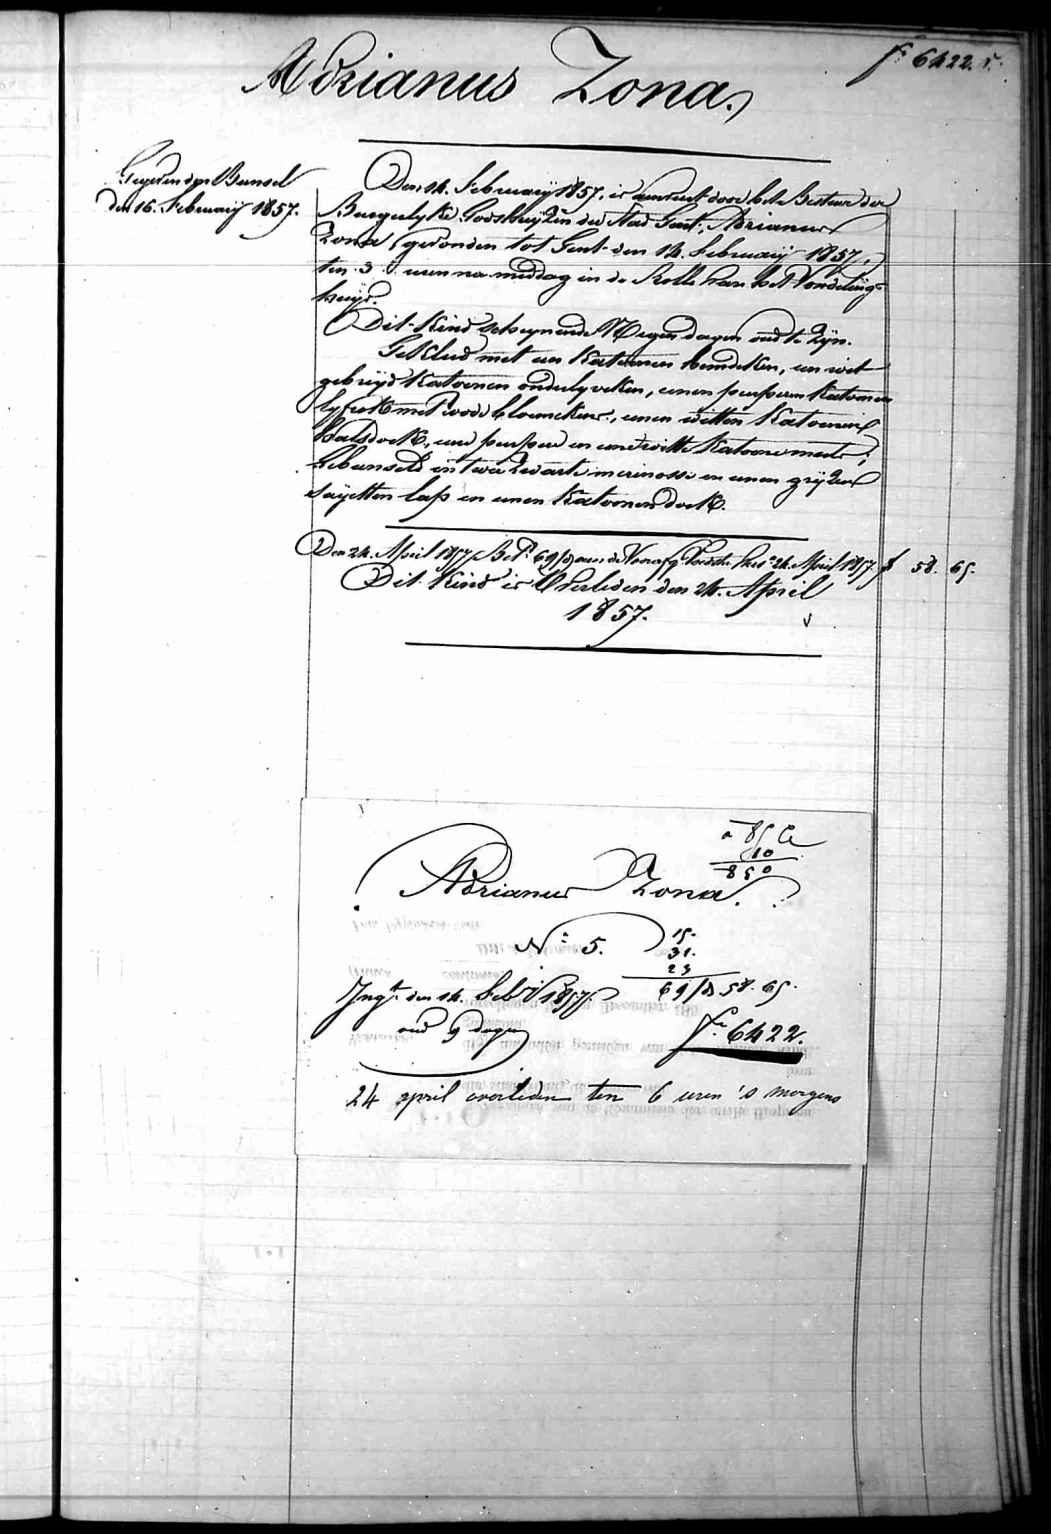 fº 6422. rº
Adrianus Zona.
Gegeven den Bunsel
den 16. February 1857.
Den 14. February 1857, is aenveert door het Bestuur der
Burgerlyke Godshuyzen der Stad Gent, Adrianus
Zona, gevonden tot Gent den 14. February 1857,
ten 3 uren na middag in de Rolle van het Vondeling-
huys.
Dit Kind schynende Negen dagen oud te zyn.
Gekleed met een Katoenen hemdeken, een wit
gebryd Katoenen onderlyveken, eenen purperen Katoenen
lyfrok met roode bloemekens, eenen witten Katoenen
halsdoek, eene purpere en eene witte Katoene muts;
Gebunseld in twee zwarte merinosse en eenen gryzen
sayetten lap en eenen Katoenen doek.
Den 24. April 1857 Bet. 69/d aen de Voorn. 24. April 1857. f 58. 65.
Dit Kind is Overleden den 24. April
1857.
a 85 Ce
10
850
Adrianus Zona.
Nº 5.
15.
31.
23
69/D 58. 65.
Ingt. den 14. Feb. 1857.
oud 9 dagen
fº 6422.
24 april overleden ten 6 uren 's morgens